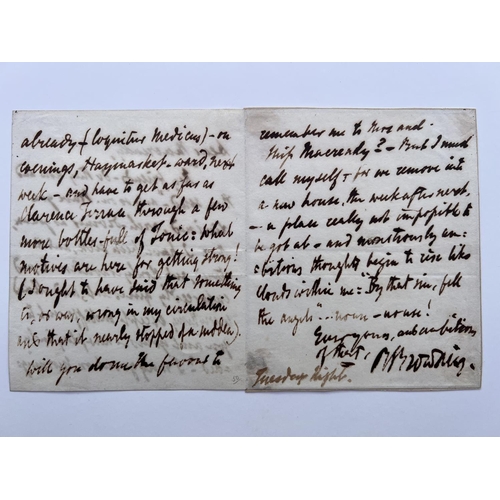 already (loquitur Medicus) - on
evenings, Haymarket-ward, next
week - and have to get as far as
Clarence Terrace through a few
more bottles-full of Tonic: what
motives are here for getting strong!
(I ought to have said that something
is, or was, wrong in my circulation
and that it nearly stopped of a sudden).
Will you do me the favour to
remember me to Mrs and
Miss Macready? - But I must
call myself - for we remove into
a new house, the week after next,
- a place really not impossible to
be got at - and monstrously am=
=bitious thoughts begin to rise like
clouds within me: "By that sin, fell
the angels" .. nous - nous!
Ever yours, and ambitious
of that,
R Browning.
Tuesday Night.